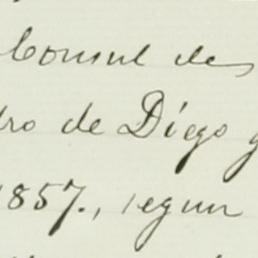 Consul de
dro de Diego y
1857., segun